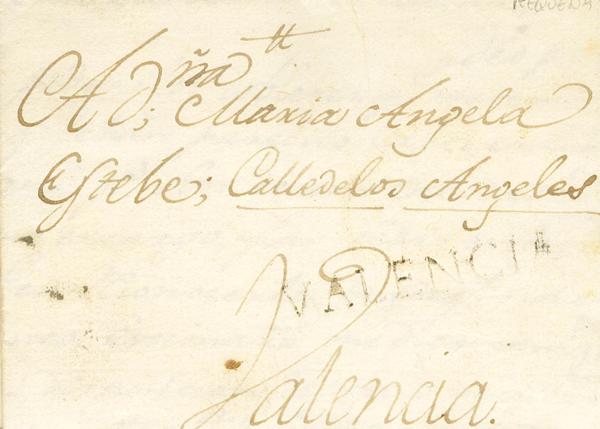 REQUENA
A D;ña Maria Angela
Estebe; Calle de los Angeles
VALENCIA
Valencia.